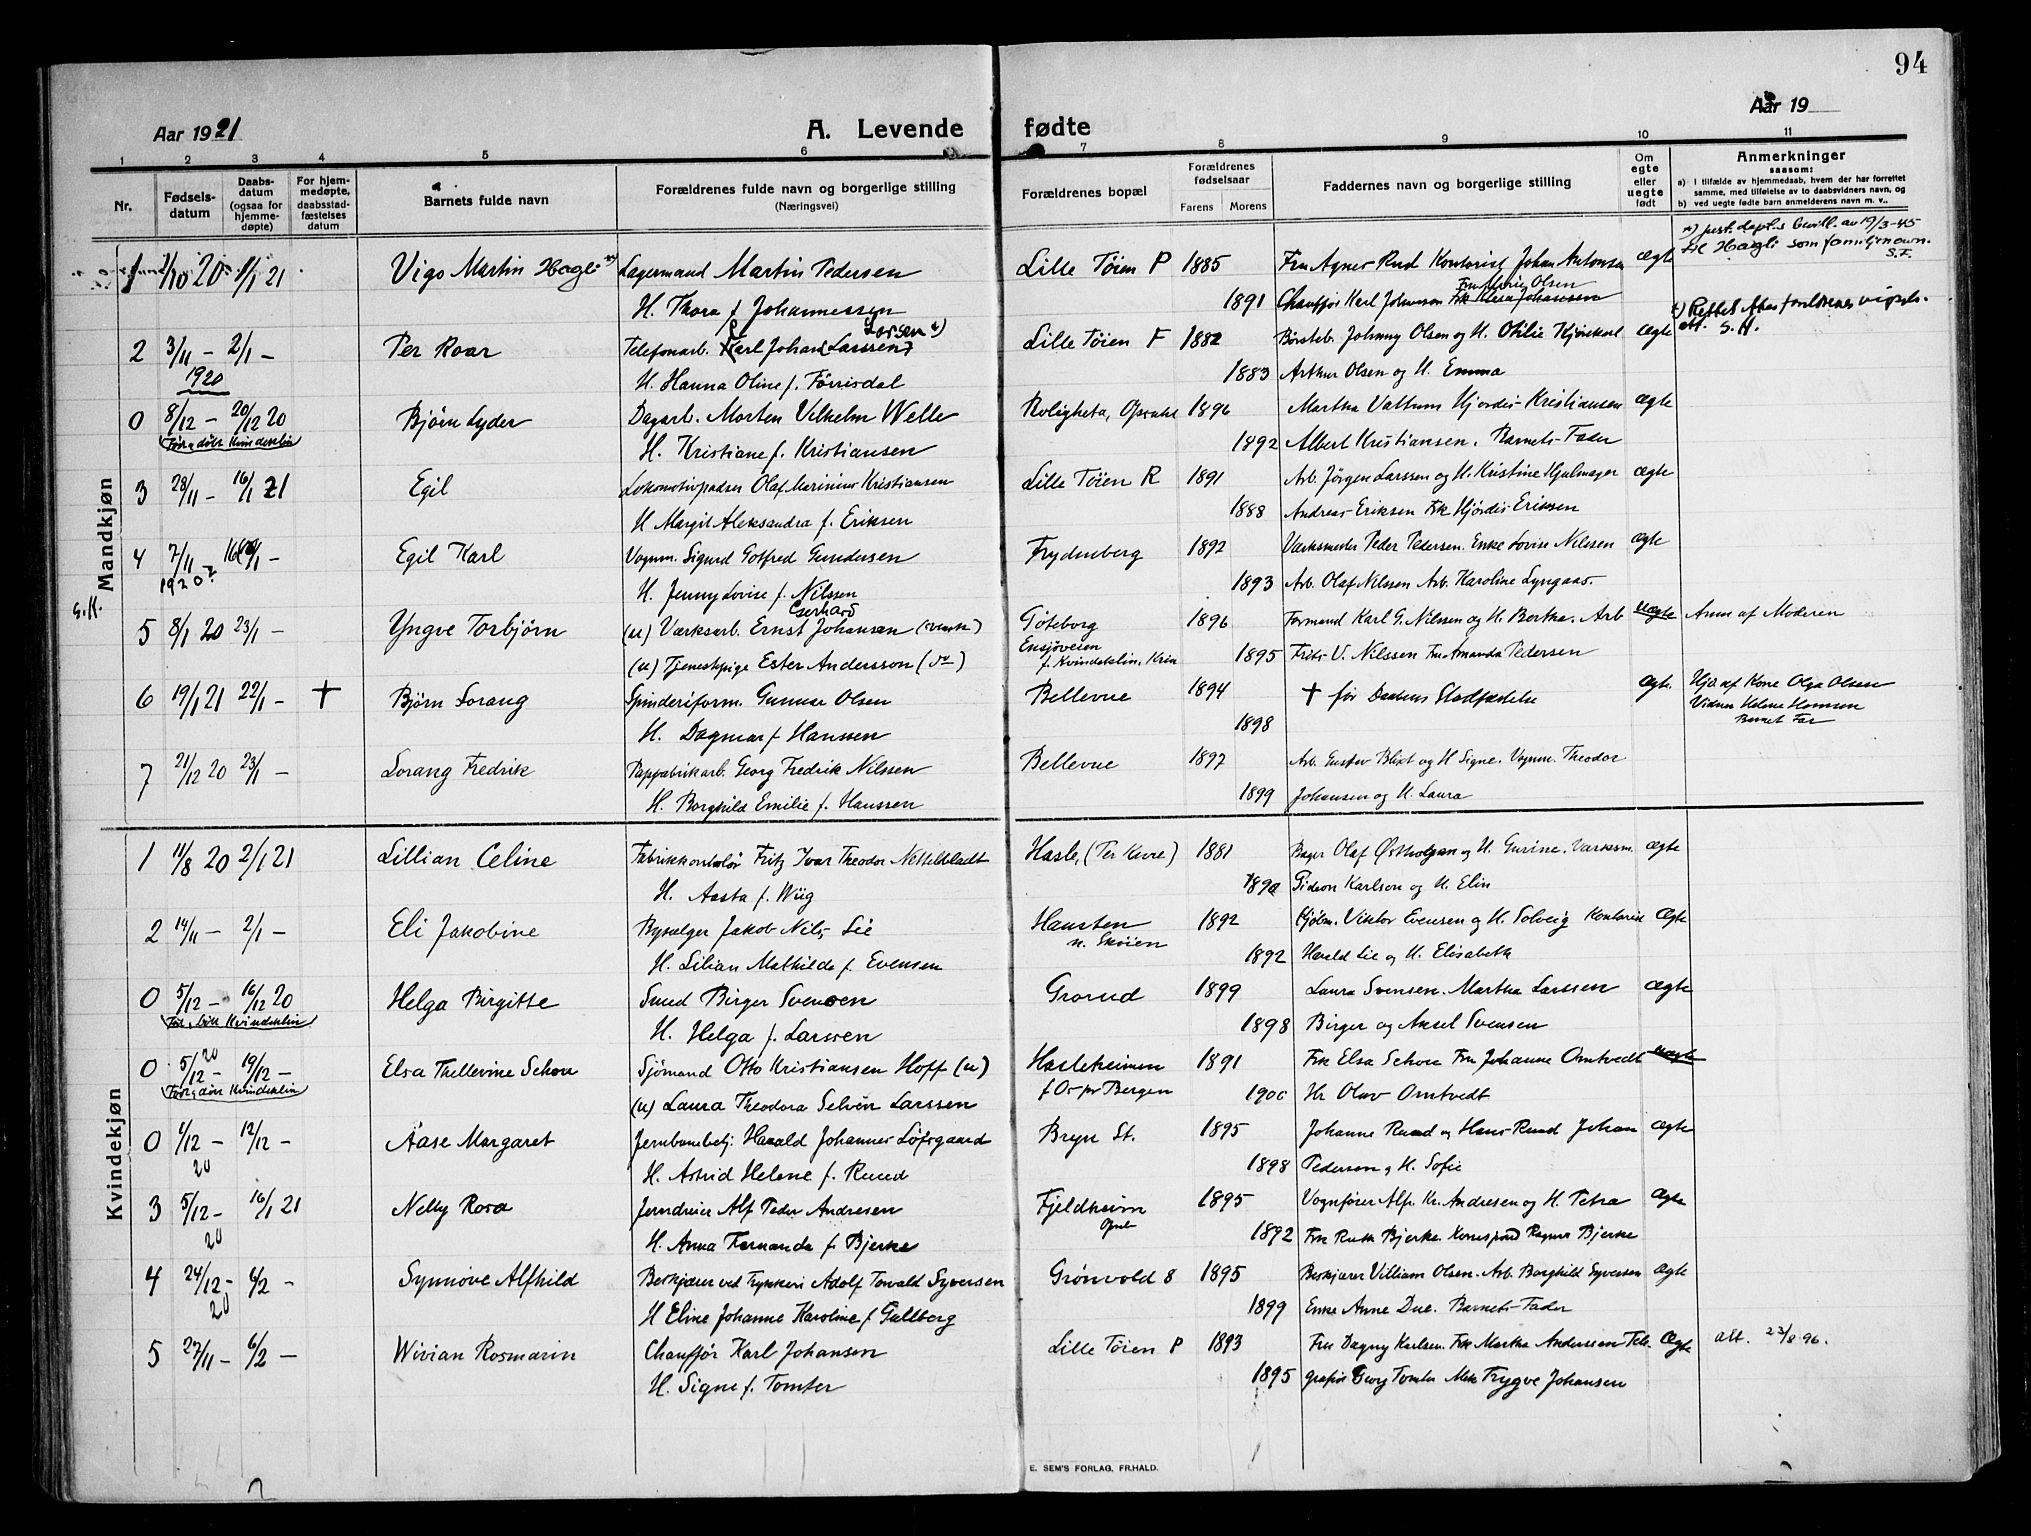 94
Aar 1921
A. Levende fødte
Aar 19
1 2 3 4 5 6 7 8 9 10 11
Nr.
Fødsels-
datum
Daabs-
datum
(ogsaa for
hjemme-
døpte)
For hjem-
medøpte,
daabsstad-
fæstelses
datum
Barnets fulde navn
Forældrenes fulde navn og borgerlige stilling
(Næringsvei)
Forældrenes bopæl
Forældrenes
fødselsaar
Farens Morens
Faddernes navn og borgerlige stilling
Om
egte
eller
uegte
født
Anmerkninger
saasom:
a) I tilfælde av hjemmedaab, hvem der har forrettet
samme, med tilføielse av to daabsvidners navn, og
b) ved uegte fødte barn anmelderens navn m. v..
Mandkjøn
x) just.dept.s bevill. av 19/3-45
til Hagli som familjenavn.
S.F.
1 2/10 20 1/1 21 Vigo Martin Hagli x) Lagermand Martin Pedersen Lille Tøien P 1885 Fru Agnes Rud Kontorist Johan Antonsen ægte
H. Thora f. Johannessen 1891 Chauffør Karl Johansen Frk Klara Johansen
Fru Marie Olsen
2 3/11 – 2/1 – Per Roar Telefonarb. Karl Johan Larssen Larsen Lille Tøien F 1882 Børsteb. Johnny Olsen og H. Otilie Kjønikel ægte
S.H.
1920 H. Hanna Oline f. Førrisdal 1883 Arthur Olsen og H. Emma
0 8/12 – 20/12 20 Bjørn Lyder Dagarb. Morten Vilhelm Welle Roligheta, Opsahl 1896 Martha Vattum Hjørdis Kristiansen ægte
H. Kristiane f. Kristiansen 1892 Albert Kristiansen. Barnets Fader
3 28/11 – 16/1 21 Egil Lokomotivpudser Olaf Marinius Kristiansen Lille Tøien R 1891 Arb. Jørgen Larssen og H. Kristine Hjulmager ægte
H Margit Aleksandra f. Eriksen 1888 Andreas Eriksen Frk Hjørdis Eriksen
4 7/11 16/1 – Egil Karl Vognm. Sigurd Gotfred Gundersen Frydenberg 1892 Værksmester Peder Pedersen. Enke Lovise Nilssen ægte
1920? H. Jenny Lovise f. Nilssen 1893 Arb. Olaf Nilssen Arb. Karoline Lyngaas
S.H.
Gerhard
5 8/1 20 23/1 – Yngve Torbjørn (u) Værksarb. Ernst Johansen (svensk) Göteborg 1896 Formand Karl G. Nilssen og H. Bertha. Arb uægte Anm af Moderen
(u) Tjenestepige Ester Andersson (do) Ensjøveien 1895 Frits V. Nilssen Fru Amanda Pedersen
f. Kvindeklin. Kria
6 19/1 21 22/1 – † Bjørn Lorang Spinderiform. Gunnar Olsen Bellevue 1894 † før Daabens Stadfæstelse ægte Hjd af Kone Olga Olsen
H. Dagmar f Hanssen 1898 Vidner Helene Hanssen
Barnets Far
7 21/12 20 23/1 – Lorang Fredrik Papfabrikarb. Georg Fredrik Nilssen Bellevue 1897 Arb. Gustav Blixt og H Signe. Vognm. Theodor
H. Borghild Emilie f. Hanssen 1899 Johansen og H. Laura
Kvindekjøn
1 11/8 20 2/1 21 Lillian Celine Fabrikkontrolør Fritz Ivar Theodor Nettelbladt Hasle, (Ter Kure) 1881 Bager Olaf Østholgan og H. Gurine. Værksm. ægte
H. Aasta f. Wiig Gideon Karlson og H. Elin
2 14/11 – 2/1 – Eli Jakobine Bysælger Jakob Nils Lie Hausten 1892 Kjøbm. Viktor Evensen og H. Solveig Kontorist Ægte
H. Lilian Mathilde f. Evensen n. Skøien 1892 Harald Lie og H. Elisabeth
0 5/12 – 16/12 20 Helga Birgitte Smed Birger Svensen Grorud 1899 Laura Svensen. Martha Larssen ægte
H. Helga f. Larssen 1898 Birger og Aksel Svensen
0 5/12 – 19/12 – Elsa Thellevine Schou Sjømand Otto Kristiansen Hoff (u) Hasleheimen 1891 Frk Elsa Schou Fru Johanne Omtvedt uægte
(u) Laura Theodora Selvine Larssen f Os pr Bergen 1900 Hr Olav Omtvedt
0 1/12 – 12/12 – Aase Margaret Jernbanebetj. Harald Johannes Løfsgaard Bryn St. 1895 Johanne Ruud og Hans Ruud Johan ægte
20 H. Astrid Helene f. Ruud 1898 Pedersen og H. Sofie
3 5/12 – 16/1 21 Nelly Rosa Jerndreier Alf Peder Andresen Fjeldheim 1895 Vognfører Alfr. Kr. Andresen og H. Petra Ægte
20 H. Anna Fernanda f. Bjerke Opsal 1892 Frk Ruth Bjerke Korrespond Ragnar Bjerke
4 24/12 – 6/2 – Synnøve Alfhild Beskjærer ved Trykkeri Adolf Torvald Syversen Grønvold 8 1895 Beskjærer Villiam Olsen. Arb. Borghild Syversen ægte
20 H Eline Johanne Karoline f Gulberg 1899 Enke Anne Due. Barnets Fader
5 27/11 – 6/2 – Wivian Rosmarin Chauffør Karl Johansen Lille Tøien P 1893 Fru Dagny Karlsen. Frk Martha Anderssen Tele- Ægte att. 23/8 96.
H. Signe f. Tomter 1895 grafist Georg Tomter Mek Trygve Johansen
E. SEM'S FORLAG, FR.HALD.